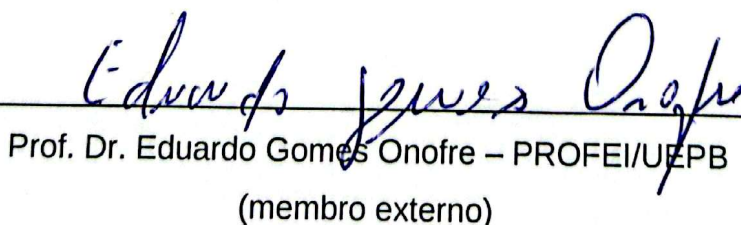 Eduardo Gomes Onofre
Prof. Dr. Eduardo Gomes Onofre – PROFEI/UEPB
(membro externo)